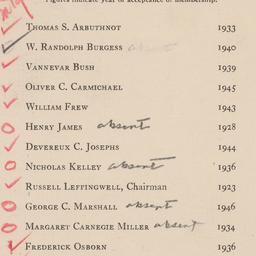 Figures indicate year of acceptance of membership.
THOMAS S. ARBUTHNOT 1933
W. RANDOLPH BURGESS absent 1940
VANNEVAR BUSH 1939
OLIVER C. CARMICHAEL 1945
WILLIAM FREW 1943
HENRY JAMES absent 1928
DEVEREUX C. JOSEPHS 1944
NICHOLAS KELLEY absent 1936
RUSSELL LEFFINGWELL, Chairman 1923
GEORGE C. MARSHALL absent 1946
MARGARET CARNEGIE MILLER absent 1934
FREDERICK OSBORN 1936